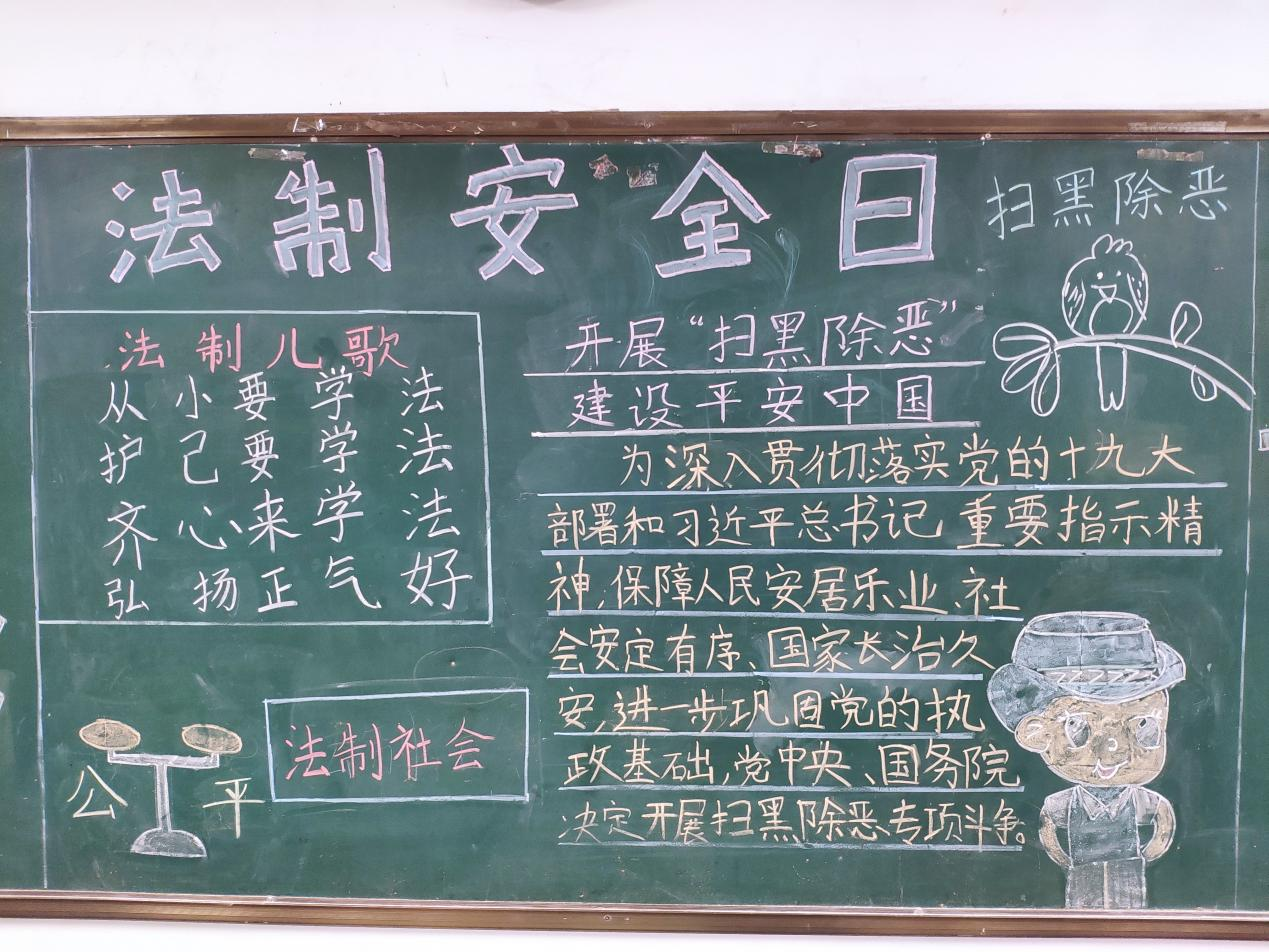 法制安全日
扫黑除恶
法制儿歌
从小要学法
护己要学法
齐心来学法
弘扬正气好
公平
法制社会
开展“扫黑除恶”
建设平安中国
为深入贯彻落实党的十九大
部署和习近平总书记重要指示精
神,保障人民安居乐业、社
会安定有序、国家长治久
安,进一步巩固党的执
政基础,党中央、国务院
决定开展扫黑除恶专项斗争。